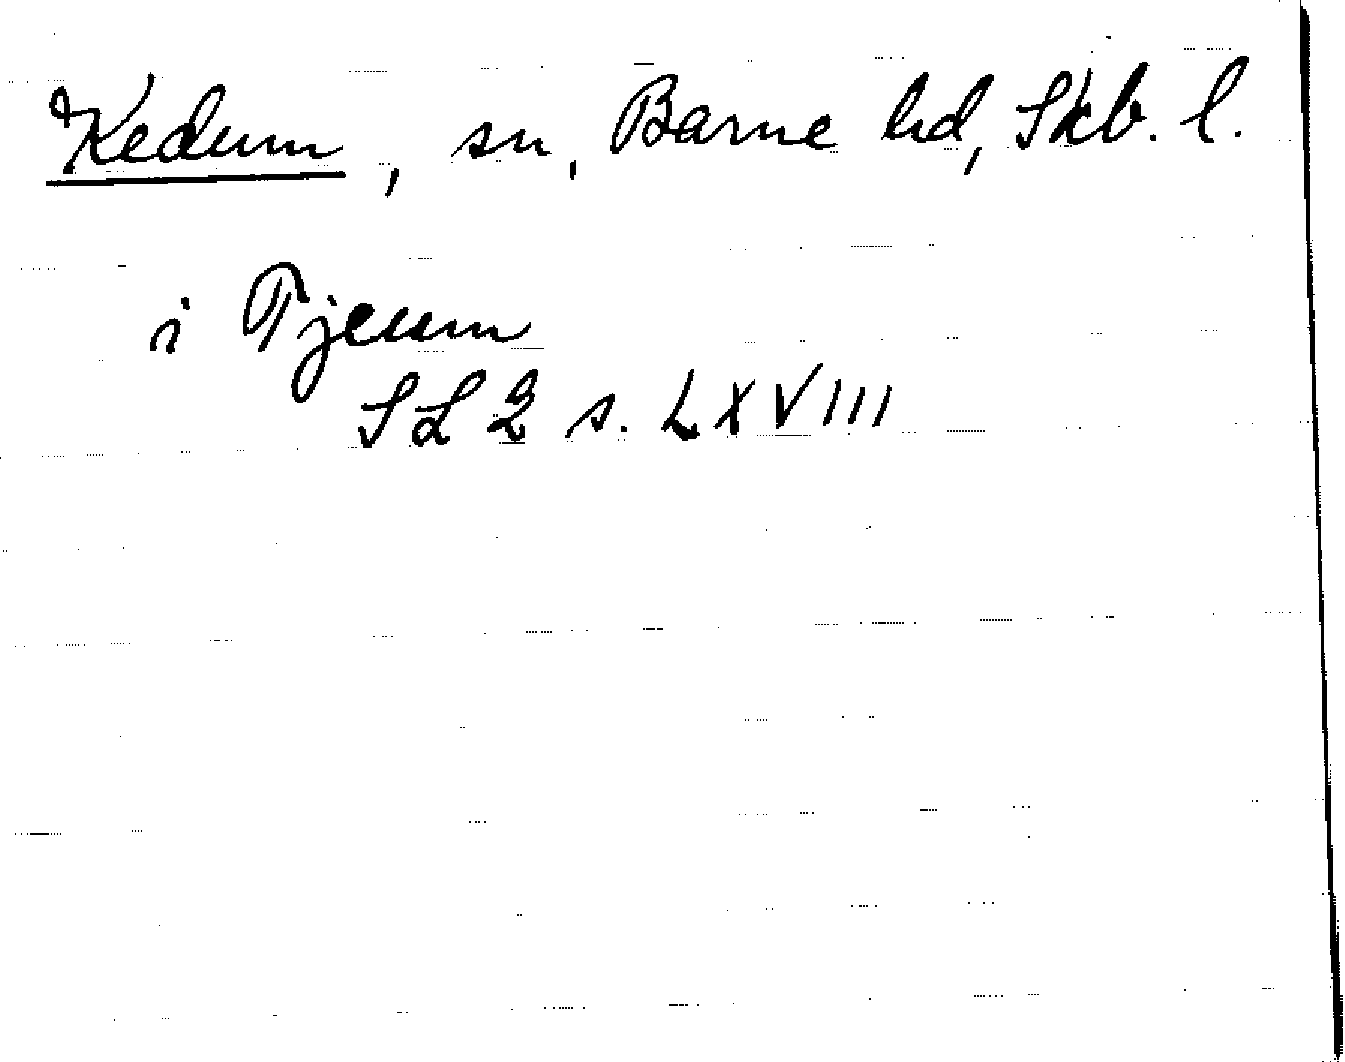 Kedum, sn, Barne hd, Skb. l.
i Tjeum
SL 2 s. LXVIII